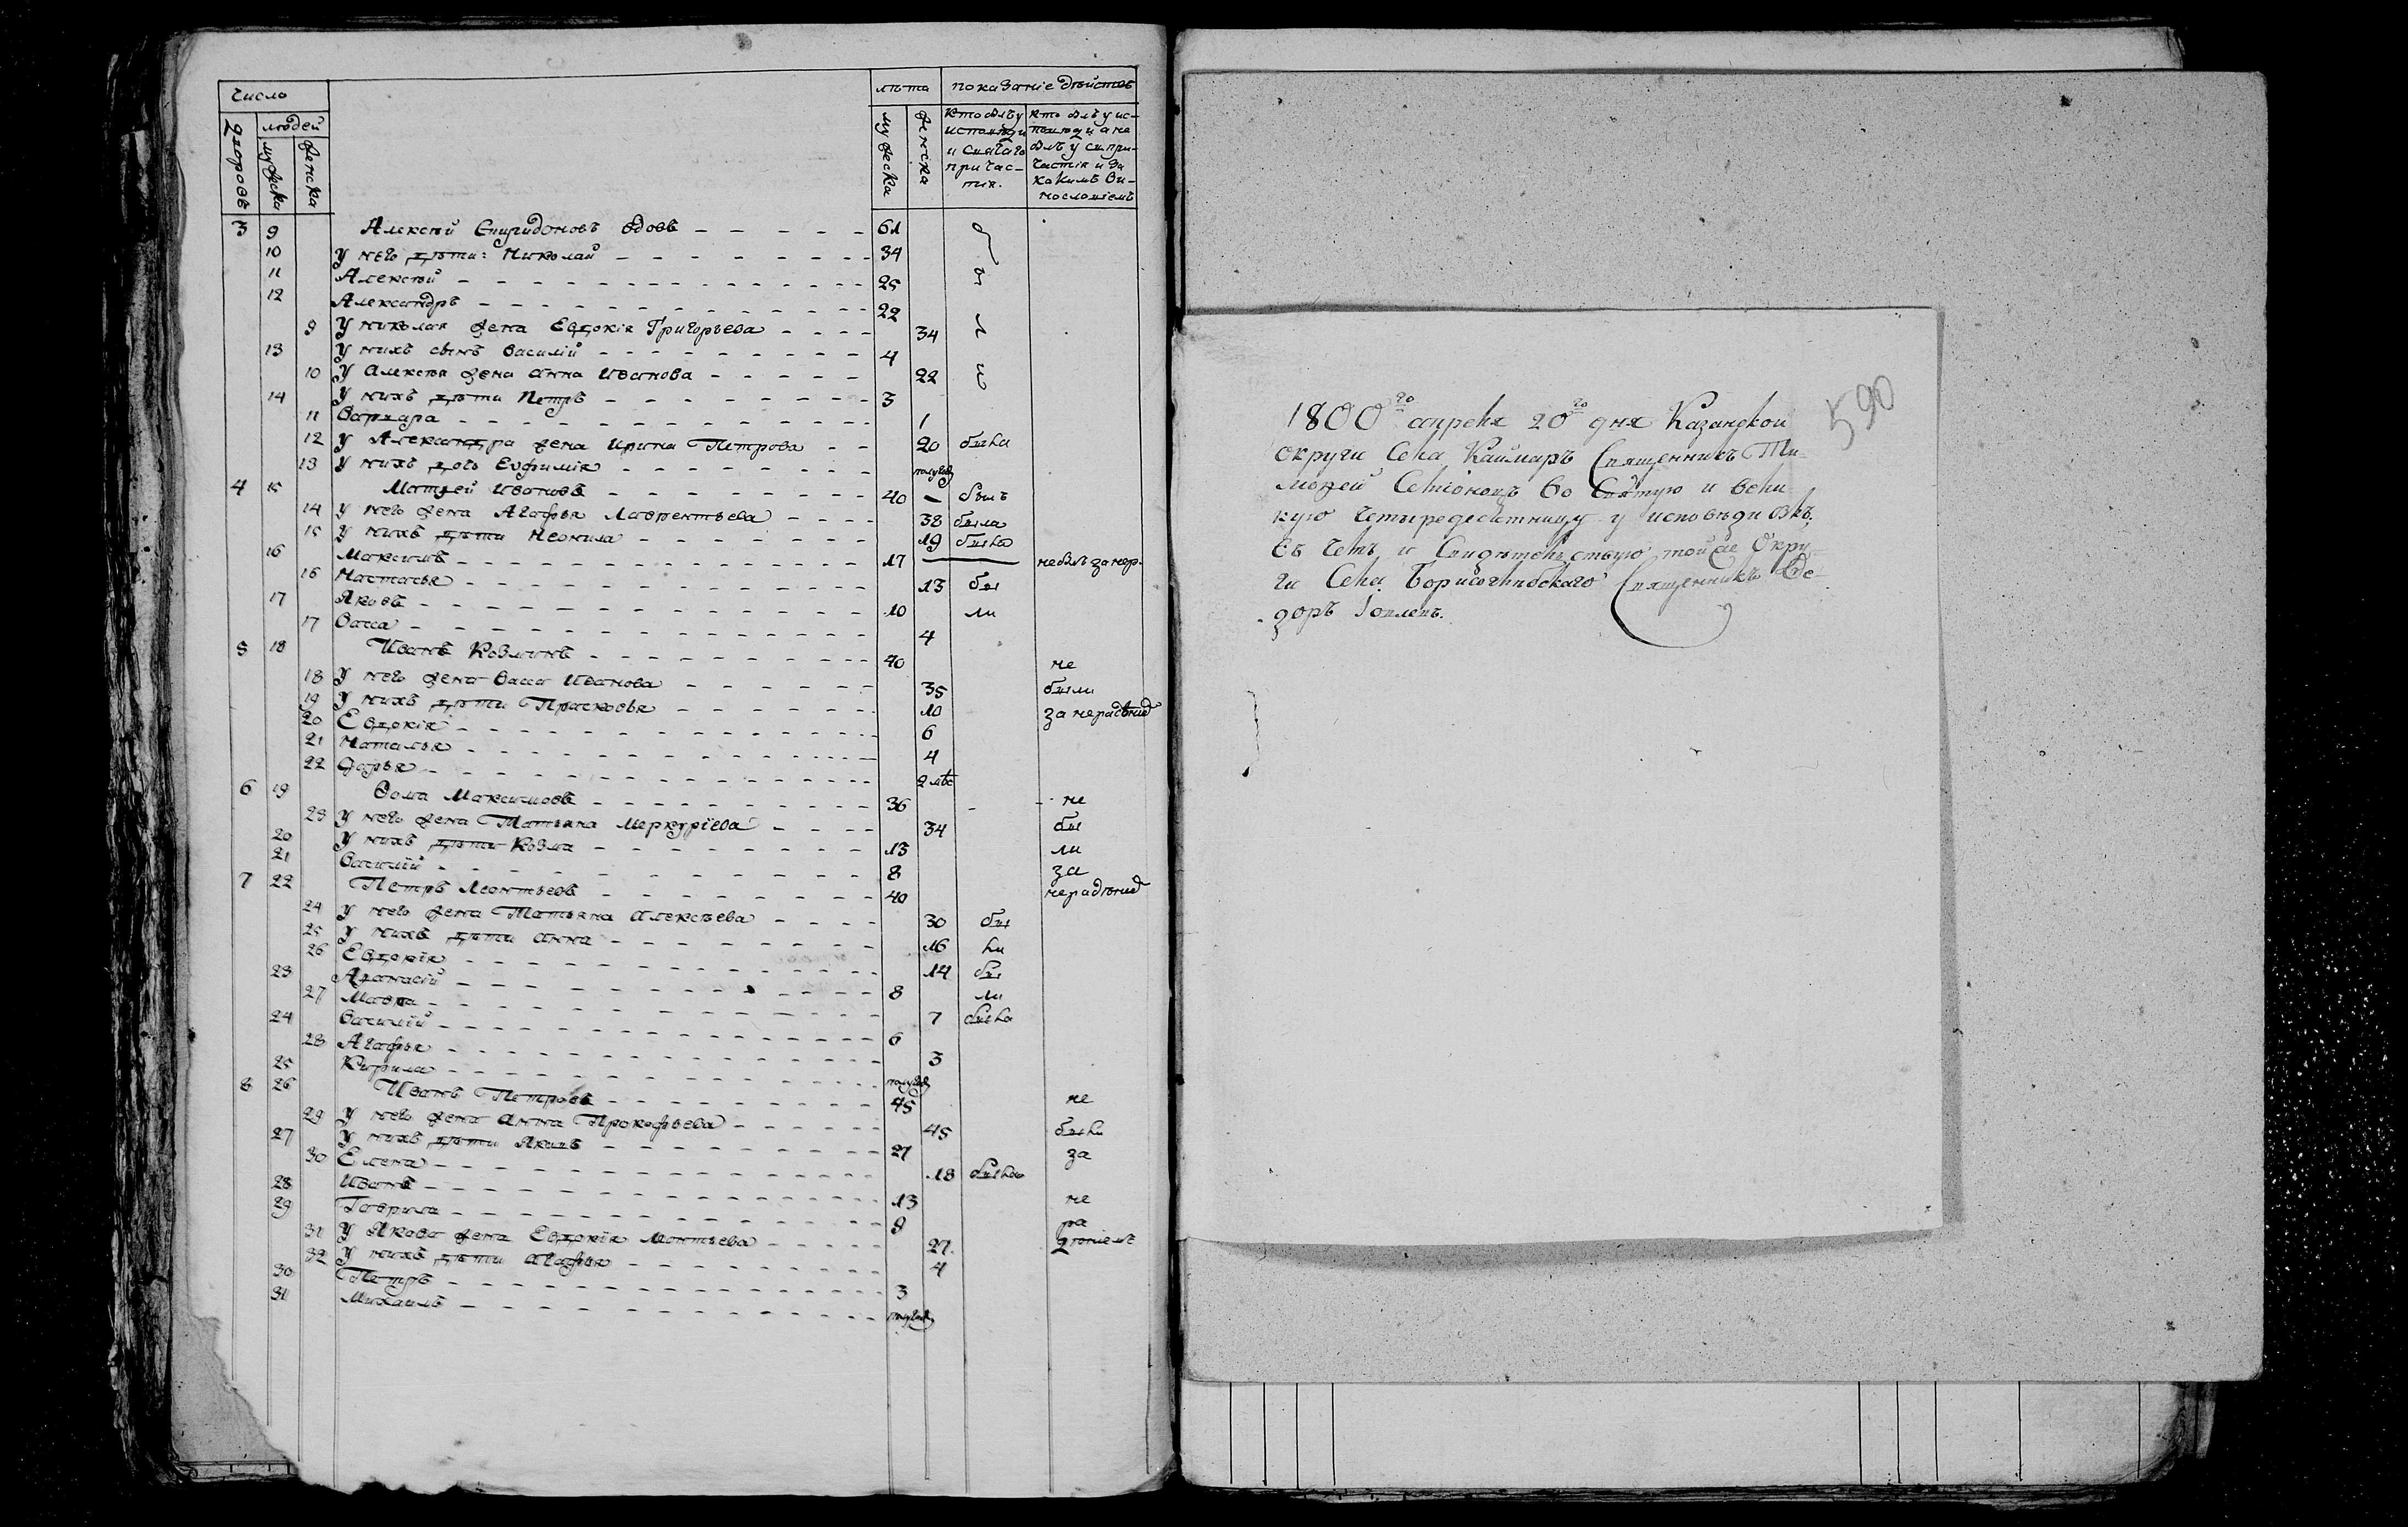 число
лѣта показаніе дѣйствъ
дворовъ
людей
мужеска
женска
мужеска
женска
кто былъ у
исповѣди
и святаго
причас-
тія.
кто былъ у ис-
повѣди а не
былъ у св. при-
частія и за
какимъ ви-
нословіемъ
3 9 Алексѣй Спиридоновъ вдовъ 61
10 у него дѣти: Николай 34
11 Алексѣй 25
12 Александръ 22
9 у николая жена Евдокія Григорьева 34
бы
ли
13 у нихъ сынъ Василій 4
10 у Алексѣя жена Анна Иванова 22
14 у нихъ дѣти Петръ 3
11 Варвара 1
12 у Александра жена Ирина Петрова 20 была
13 у нихъ дочь Евфимія полугод
4 15 Матвей Ивановъ 40 — былъ
14 у него жена Агафья Лаврентьева 38 была
15 у нихъ дѣти Неонила 19 была
16 Максимъ 17 небылъ за нер.
16 Настасья 13 бы
17 Яковъ 10 ли
17 Васса 4
5 18 Иванъ Козминъ 40 не
18 у него жена Васса Иванова 35 были
19 у нихъ дѣти Прасковья 10 за нерадѣніе
20 Евдокія 6
21 Наталья 4
22 Дарья
6 19 Ѳома Максимовъ 36 не
23 у него жена Татьяна Меркурїева 34 бы
20 у нихъ дѣти Козма 13 ли
21 Василїй 8 за
7 22 Петръ Леонтьевъ 40 нерадѣніе
24 у него жена Татьяна Алексѣева 30 бы
25 у нихъ дѣти Анна 16 ли
26 Евдокїя 14 бы
23 Аѳанасій 8 ли
27 Мавра 7 была
24 Василїй 6
28 Агафья 3
25 Кирила полугод
8 26 Иванъ Петровъ 45 не
29 у него жена Анна Прокофьева 45 были
27 у нихъ дѣти Яковъ 27 за
30 Елена 18 была
28 Иванъ 13 не
29 Гаврила 9 ра
31 у Якова жена Евдокія Леонтьева 27. дѣніемъ
32 у нихъ дѣти Агафья 4
30 Петръ 3
31 Михаилъ полугод
590
1800го апреля 20го дня Казанской
округи Села Каймаръ Священникъ Ти-
моѳей во Святую и Вели
кую четыредесятницу у исповѣди
округ
ги Села Борисоглѣбскаго Священникъ Ѳе-
доръ